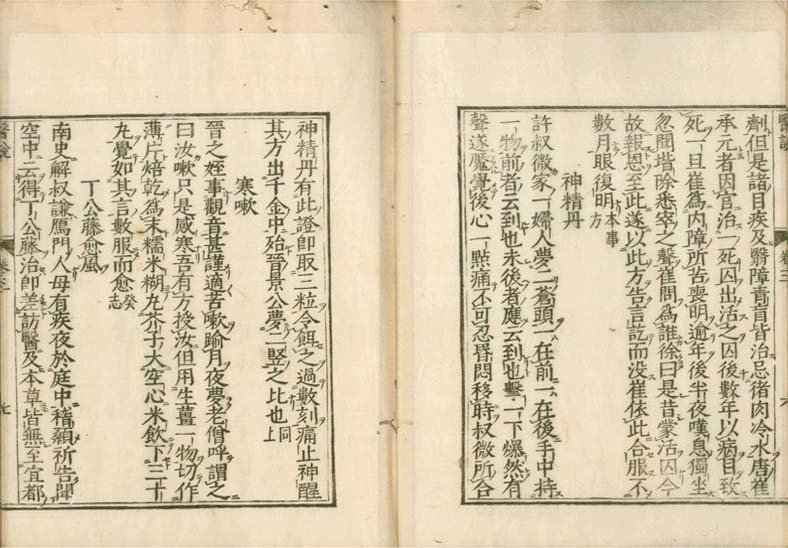 醫說
卷三
六
劑但是諸目疾及翳障青盲皆治忌豬肉冷水唐崔
承元者因官治一死囚出活之囚後數年以病目致
死一旦崔爲内障所苦喪明逾年後半夜嘆息獨坐
忽聞堦除悉窣之聲崔問爲誰徐曰是昔蒙活囚今
故報恩至此遂以此方告言訖而没崔依此合服不
數月眼復明本事方
神精丹
許叔微家一婦人夢二蒼頭一在前一在後手中持
一物前者云到也未後者應云到也擊一下爆然有
聲遂魘覺後心一點痛不可忍昏悶移時叔微所合
神精丹有此證卽取三粒令餌之過數刻痛止神醒
其方出千金中殆晉景公夢二竪之比也同上
寒嗽
晉之姪事觀音甚謹適苦嗽踰月夜夢老僧呼謂之
曰汝嗽只是感寒吾有方授汝但用生薑一物切作
薄片焙乾爲末糯米糊丸芥子大空心米飮下三十
丸覺如其言數服而愈癸志
丁公藤愈風
南史解叔謙鴈門人母有疾夜於庭中稽顙祈告聞
空中云得丁公藤治卽差訪醫及本草皆無至宜都
醫說
卷三
七